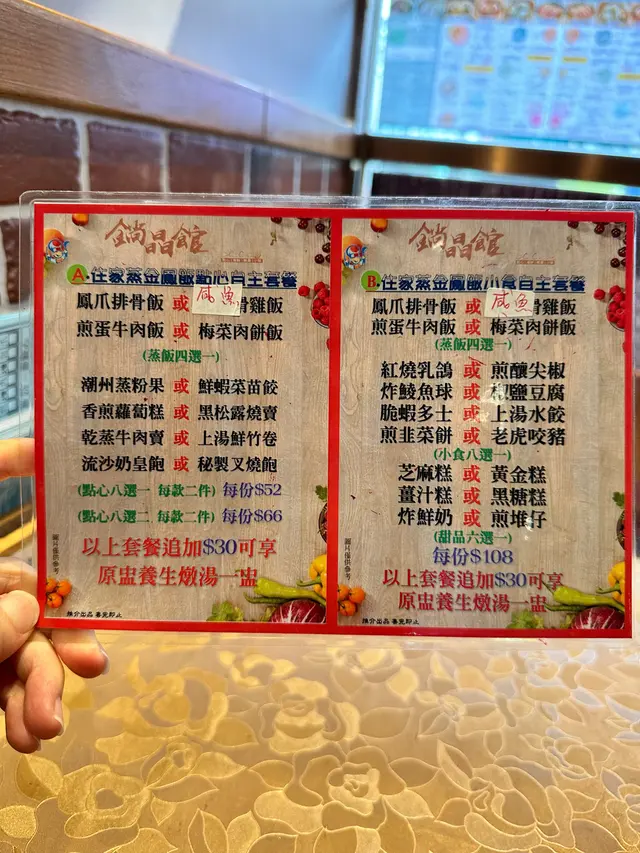 鍋晶館
A.住家蒸金鳳飯點心自主套餐
鳳爪排骨飯 或 咸魚 骨雞飯
煎蛋牛肉飯 或 梅菜肉餅飯
(蒸飯四選一)
潮州蒸粉果 或 鮮蝦菜苗餃
香煎蘿蔔糕 或 黑松露燒賣
乾蒸牛肉賣 或 上湯鮮竹卷
流沙奶皇飽 或 秘製叉燒飽
(點心八選一 每款二件) 每份$52
(點心八選二 每款二件) 每份$66
以上套餐追加$30可享
原盅養生燉湯一盅
圖片僅供參考
推介出品 售完即止
鍋晶館
B.住家蒸金鳳飯小食自主套餐
鳳爪排骨飯 或 咸魚 骨雞飯
煎蛋牛肉飯 或 梅菜肉餅飯
(蒸飯四選一)
紅燒乳鴿 或 煎釀尖椒
炸鯪魚球 或 椒鹽豆腐
脆蝦多士 或 上湯水餃
煎韭菜餅 或 老虎咬豬
(小食八選一)
芝麻糕 或 黃金糕
薑汁糕 或 黑糖糕
炸鮮奶 或 煎堆仔
(甜品六選一)
每份$108
以上套餐追加$30可享
原盅養生燉湯一盅
圖片僅供參考
推介出品 售完即止